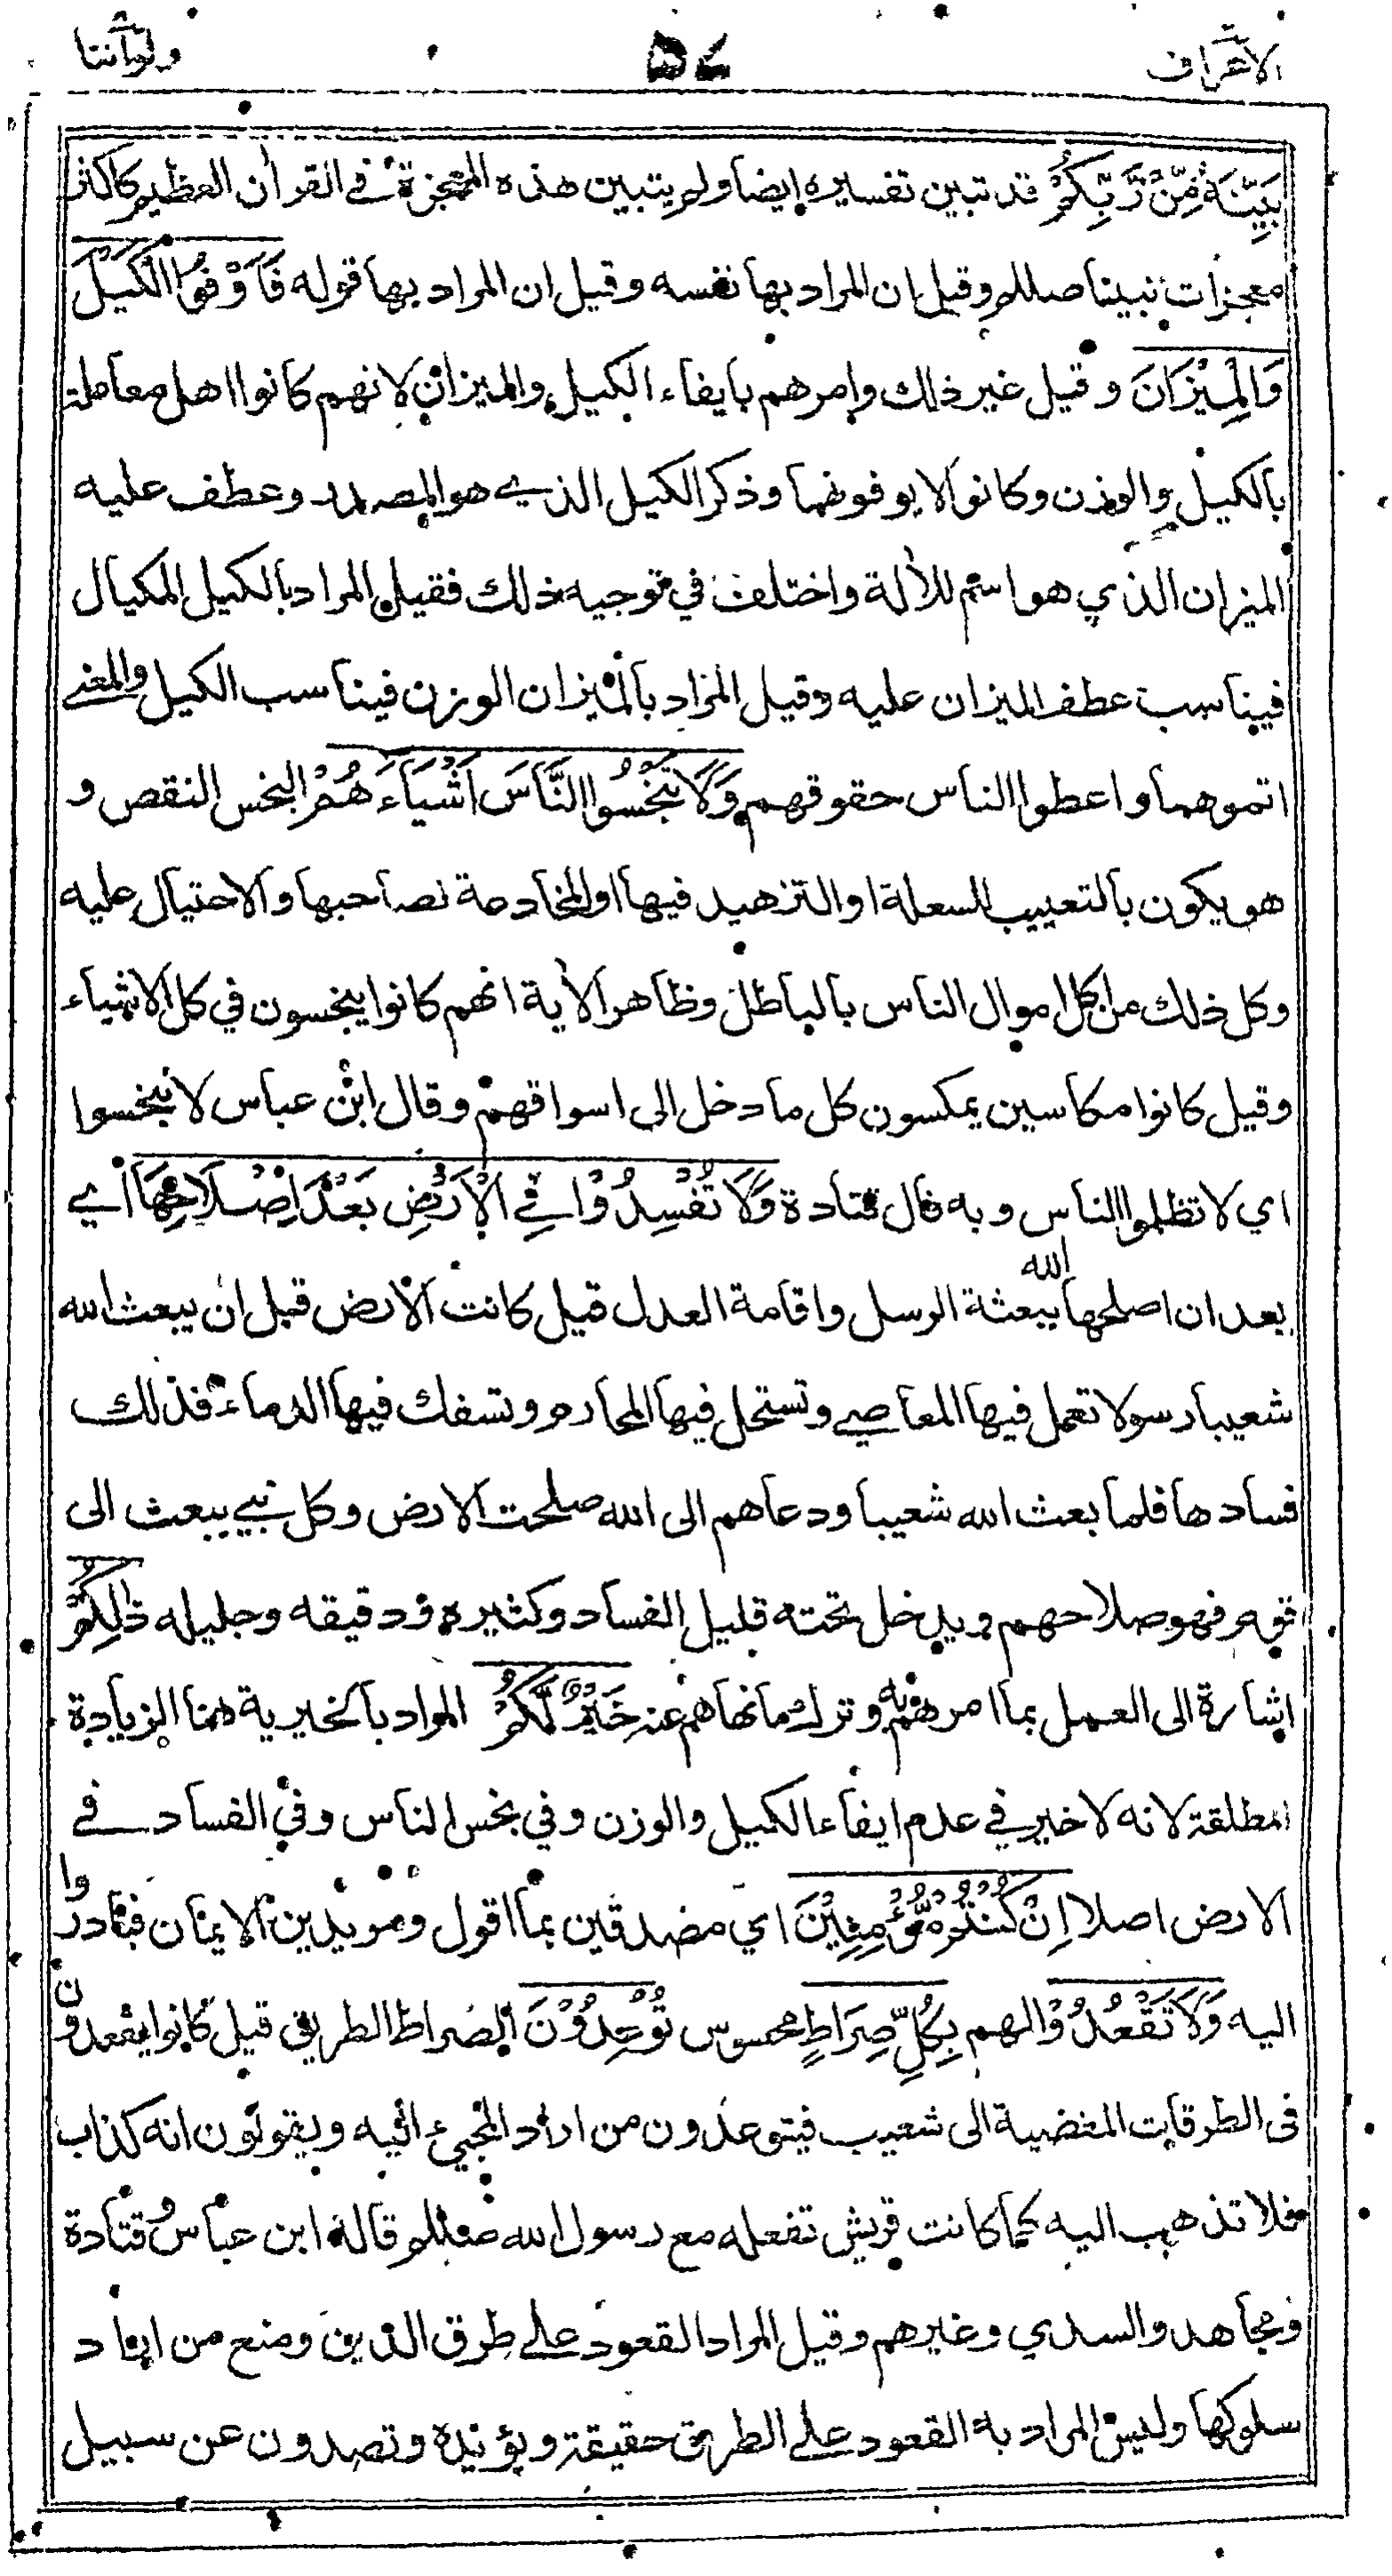 الاعراف ٥٤ ولواننا
بَيِّنَةٌ مِّنْ رَّبِّكُمْ قد تبين تفسيره ايضا ولم يتبين هذه المعجزة في القران العظيم كاكثر
معجزات نبينا صللم وقيل ان المراد بها نفسه وقيل ان المراد بها قوله فَاَوْفُوا الْكَيْلَ
وَالْمِيْزَانَ وقيل غير ذلك وامرهم بايفاء الكيل والميزان لانهم كانوا اهل معاملة
بالكيل والوزن وكانوا لا يوفونهما وذكر الكيل الذي هو المصدر وعطف عليه
الميزان الذي هو اسم للألة واختلف في توجيه ذلك فقيل المراد بالكيل المكيال
فيناسب عطف الميزان عليه وقيل المراد بالميزان الوزن فيناسب الكيل والمعنے
اتموهما واعطوا الناس حقوقهم وَلَا تَبْخَسُوا النَّاسَ اَشْيَآءَهُمْ البخس النقص و
هو يكون بالتعييب للسعلة او التزهيد فيها او المخادعة لصاحبها والاحتيال عليه
وكل ذلك من اكل اموال الناس بالباطل وظاهر الأية انهم كانوا يبخسون في كل الاشياء
وقيل كانوا مكاسين يمكسون كل ما دخل الى اسواقهم وقال ابن عباس لا تبخسوا
اي لا تظلموا الناس وبه قال قتادة وَلَا تُفْسِدُوْا فِي الْاَرْضِ بَعْدَ اِصْلَاحِهَا اي
بعد ان اصلحها الله ببعثة الرسل واقامة العدل قيل كانت الارض قبل ان يبعث الله
شعيبا رسولا تعمل فيها المعاصي وتستحل فيها المحارم وتسفك فيها الدماء فذلك
فسادها فلما بعث الله شعيبا ودعاهم الى الله صلحت الارض وكل نبي يبعث الى
قومه فهو صلاحهم ويدخل تحته قليل الفساد وكثيره ودقيقه وجليله ذٰلِكُمْ
اشارة الى العمل بما امرهم به وترك ما نهاهم عنه خَيْرٌ لَّكُمْ المراد بالخيرية هنا الزيادة
المطلقة لانه لا خير في عدم ايفاء الكيل والوزن وفي بخس الناس وفي الفساد في
الارض اصلا اِنْ كُنْتُمْ مُّؤْمِنِيْنَ اي مصدقين بما اقول ومريدين الايمان فبادروا
اليه وَلَا تَقْعُدُوْا لهم بِكُلِّ صِرَاطٍ محسوس تُوْعِدُوْنَ الصراط الطريق قيل كانوا يقعدون
فى الطرقات المفضية الى شعيب فيتوعدون من اراد المجيء اليه ويقولون انه كذاب
فلا تذهب اليه كما كانت قريش تفعله مع رسول الله صللم قاله ابن عباس وقتادة
ومجاهد والسدي وغيرهم وقيل المراد القعود على طرق الدين ومنع من اراد
سلوكها وليس المراد به القعود على الطريق حقيقة ويؤيده وتصدون عن سبيل